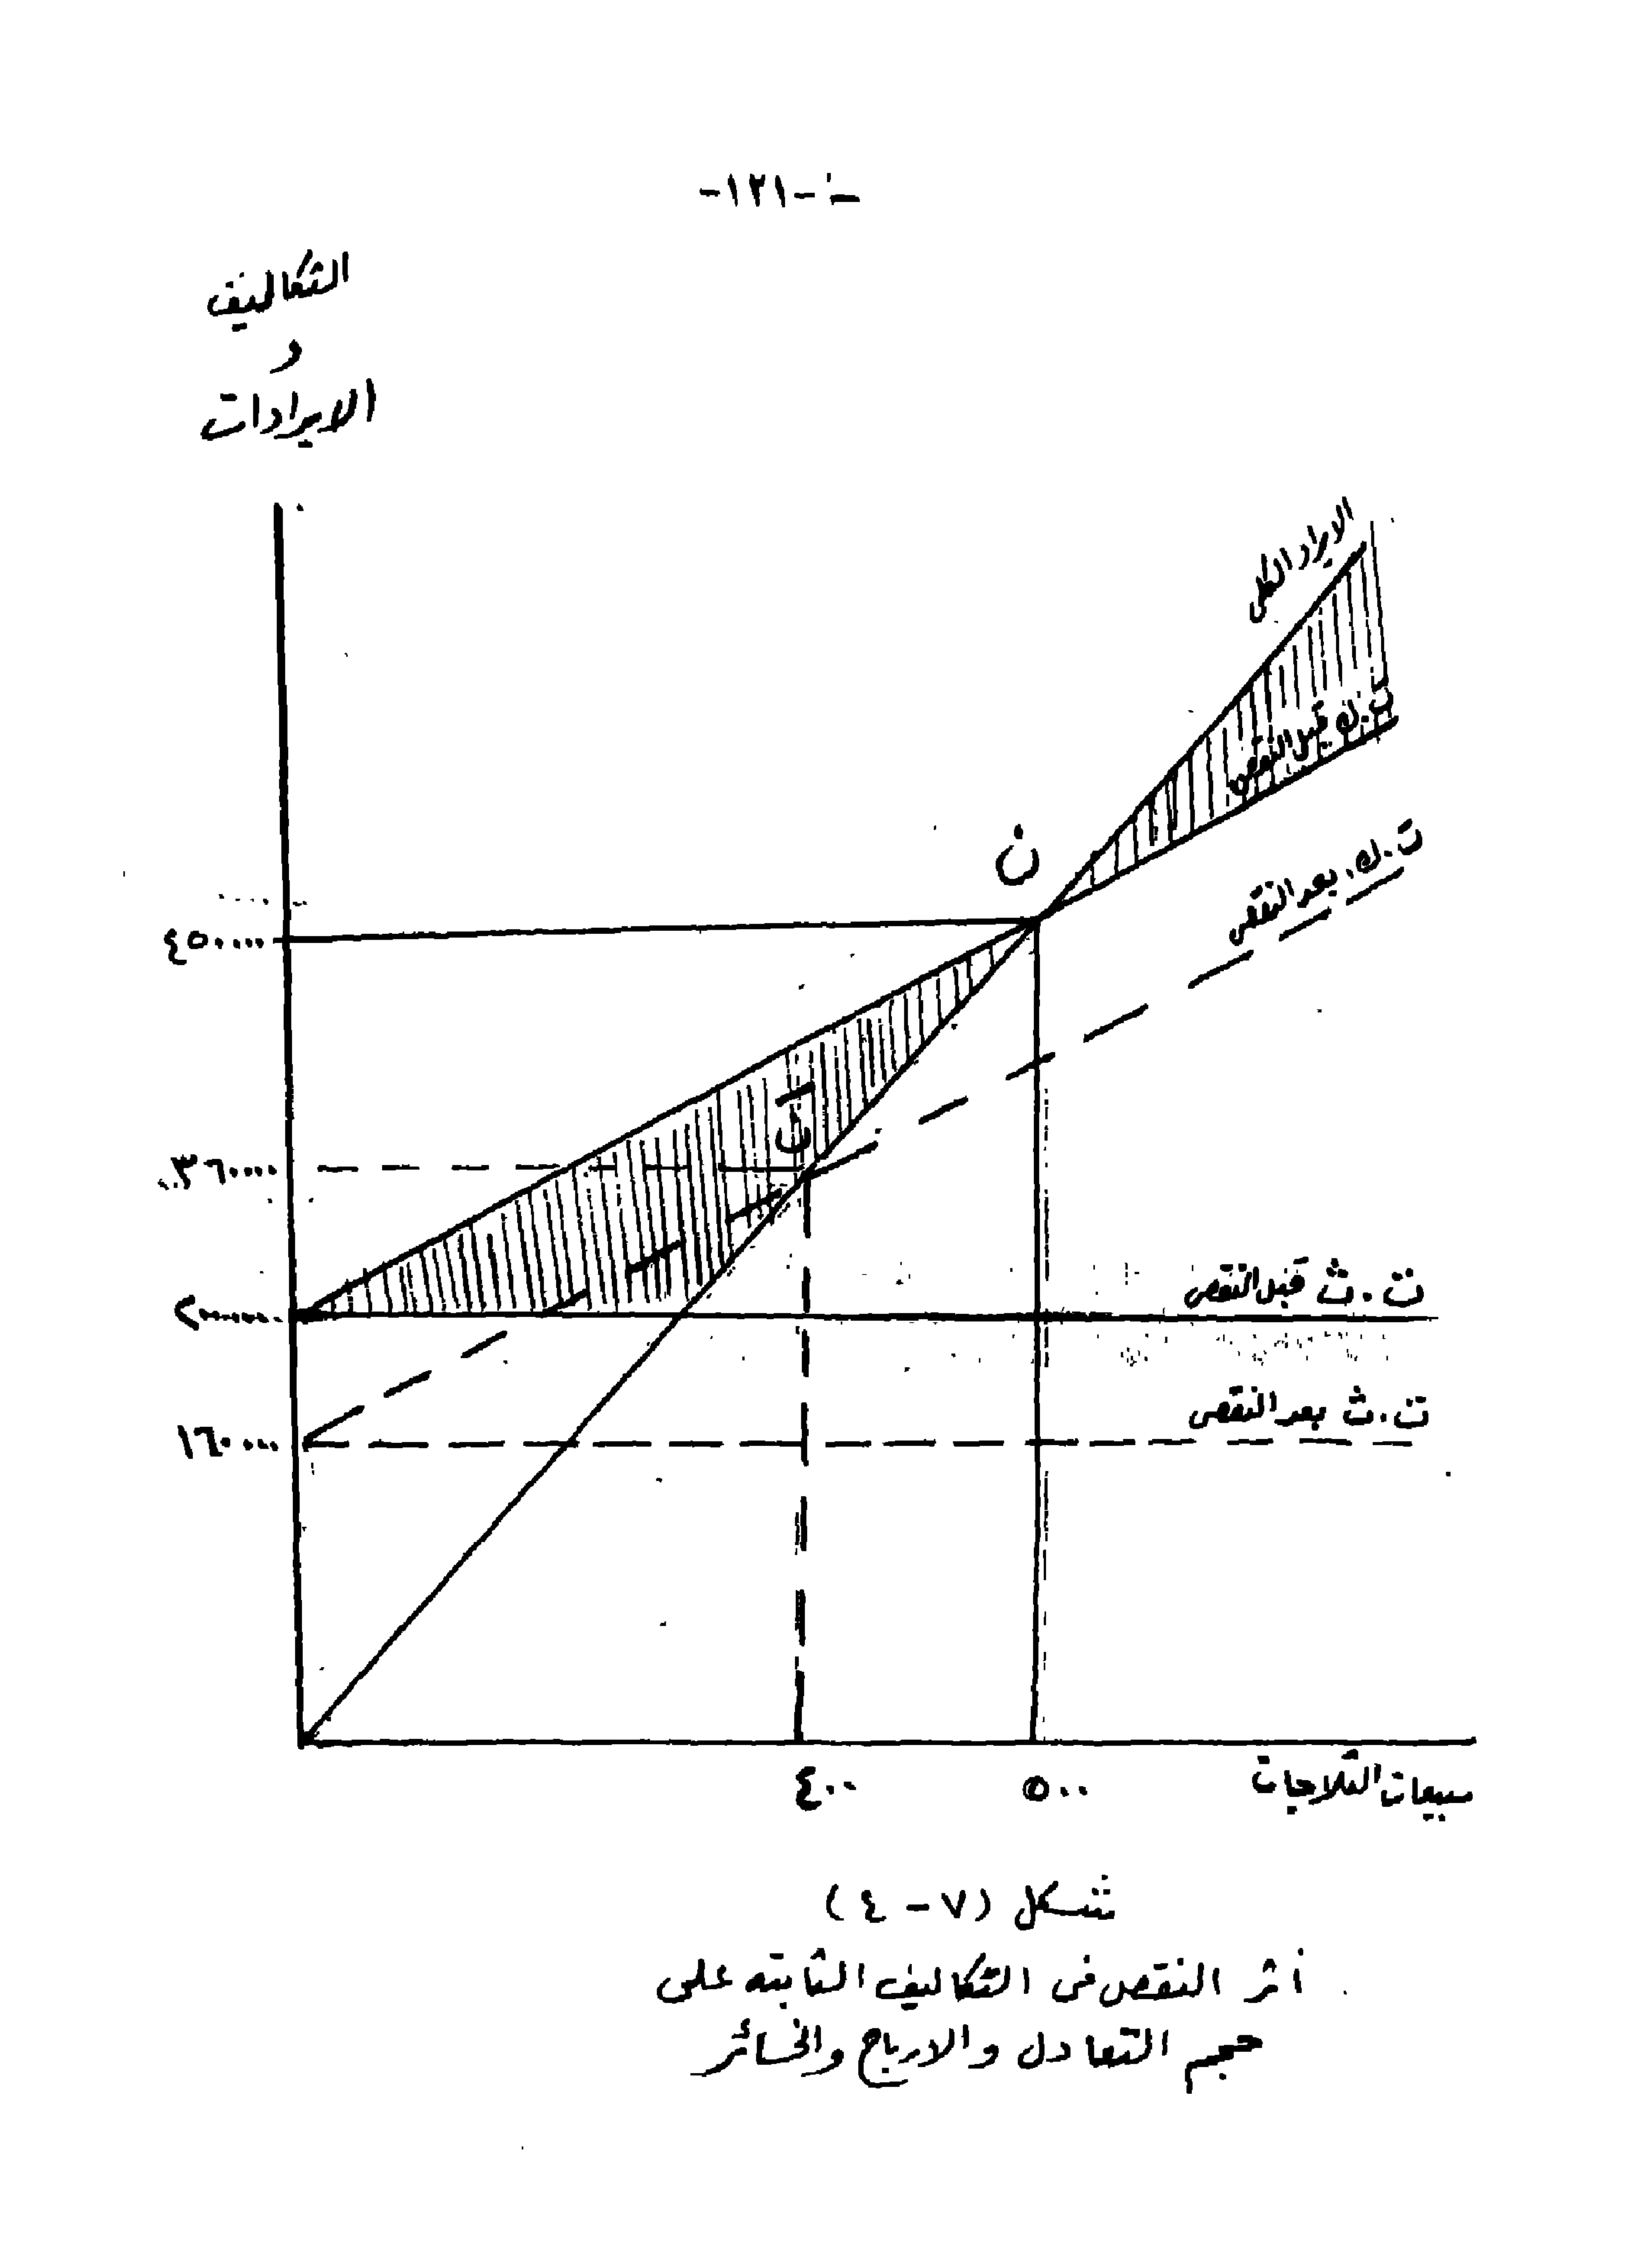 -١٢١-
التكاليف
و
الايرادات
الايراد الكلى
ت.ك قبل النقص
ت.ك. بعد النقص
ن
٤٥٠٠٠٠
نَ
٣٦٠٠٠٠
ت.ث قبل النقص
٢٠٠٠٠٠
ت.ث بعد النقص
١٦٠٠٠٠
٤٠٠ ٥٠٠ مبيعات الثلاجات
شكل (٧ - ٤)
أثر النقص فى التكاليف الثابته على
حجم التعادل والارباح والخسائر